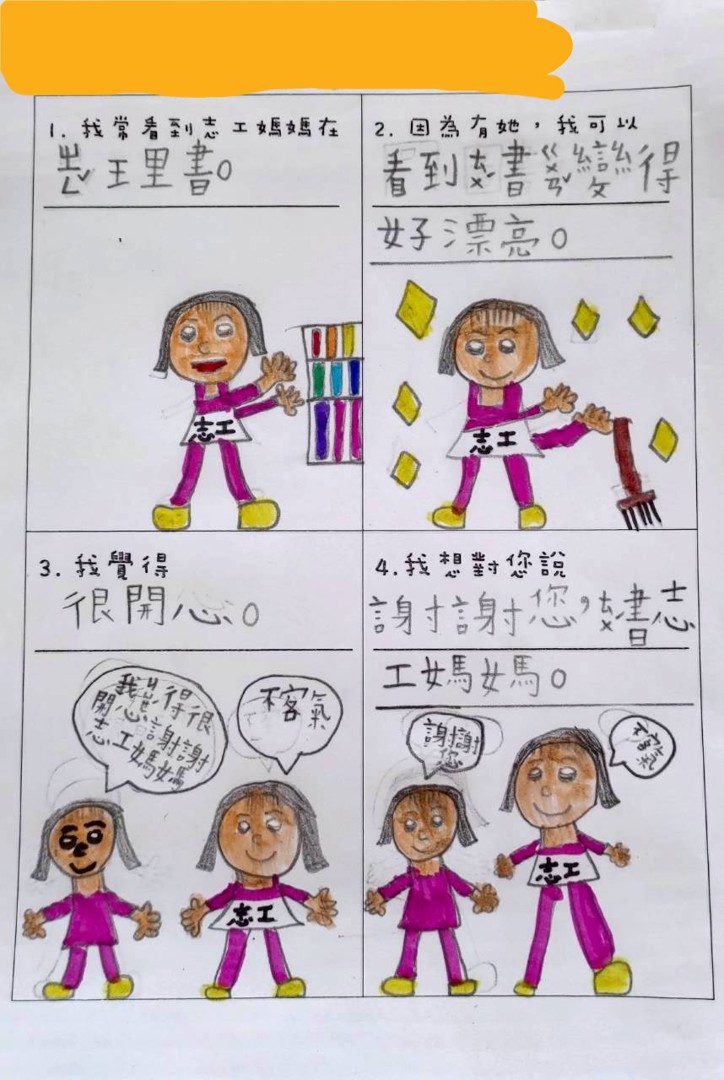 1. 我常看到志工媽媽在
ㄓㄥˇ王里書。
志工
2. 因為有她，我可以
看到ㄊㄨˊ書ㄍㄨㄢˇ變得
好漂亮。
志工
3. 我覺得
很開心。
我覺得很
開心謝謝
志工媽媽
不客氣
志工
4.我想對您說
謝謝您，ㄊㄨˊ書志
工媽媽。
謝謝
您
不客氣
志工